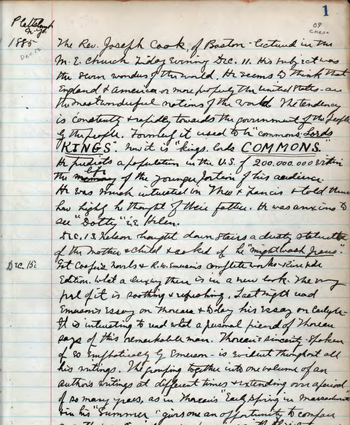 1
Plattsburgh
N.Y.
1885
Dec. 12
The Rev. Joseph Cook, of Boston lectured in the
M. E. Church Friday evening Dec. 11. His subject was
the seven wonders of the world. He seems to think that
England & America or more properly the United States are
the most wonderful nations of the world. The tendency
is constantly & rapidly towards the government of the people
by the people. Formerly it used to be "commons, Lords
KINGS". Now it is "kings, lords COMMONS."
He predicts a population in the U.S. of 200.000.000 within
the life of the younger portion of his audience.
He was much interested in Theo & Francis & told them
how highly he thought of their father. He was anxious to
see "Dotty" i.e. Helen.
Dec. 13 Nelson brought down stairs a dusty statuette
of the mother & child & asked if the "nightwash Jesus".
Dec. 15.
Got Cooper's novels & R. W. Emerson's complete works Riverside
Edition. What a luxury there is in a new book. The very
feel of it is soothing & refreshing. Last night read
Emerson's essay on Thoreau & today his essay on Carlyle.
It is interesting to read what a personal friend of Thoreau
says of this remarkable man. Thoreau's sincerity, spoken
of so emphatically by Emerson is evident throughout all
his writings. The grouping together into one volume of an
author's writings at different times & extending over a period
of so many years, as in Thoreau's Early Spring in Massachusetts
& in his "Summer" gives one an opportunity to compare